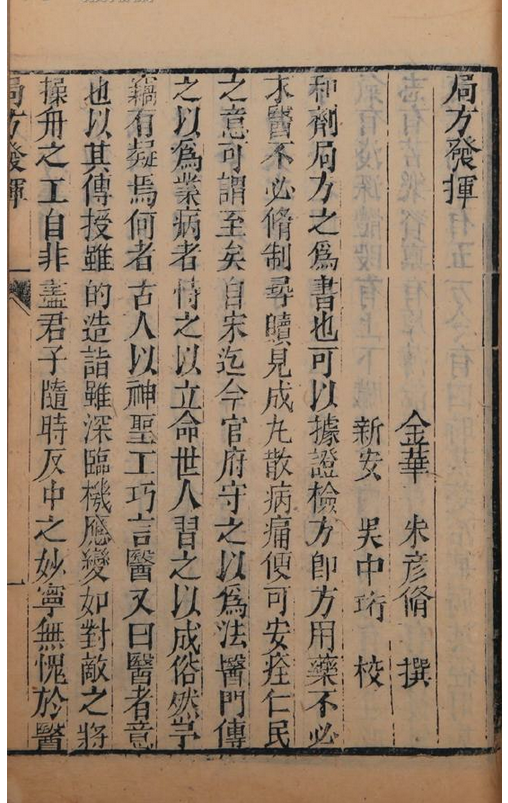 局方發揮
金華 朱彥脩 撰
新安 吳中珩 校
和劑局方之爲書也可以據證檢方卽方用藥不必
求醫不必脩制尋贖見成丸散病痛便可安痊仁民
之意可謂至矣自宋迄今官府守之以爲法醫門傳
之以爲業病者恃之以立命世人習之以成俗然予
竊有疑焉何者古人以神聖工巧言醫又曰醫者意
也以其傳授雖的造詣雖深臨機應變如對敵之將
操舟之工自非盡君子隨時反中之妙寧無愧於醫
局方發揮
一